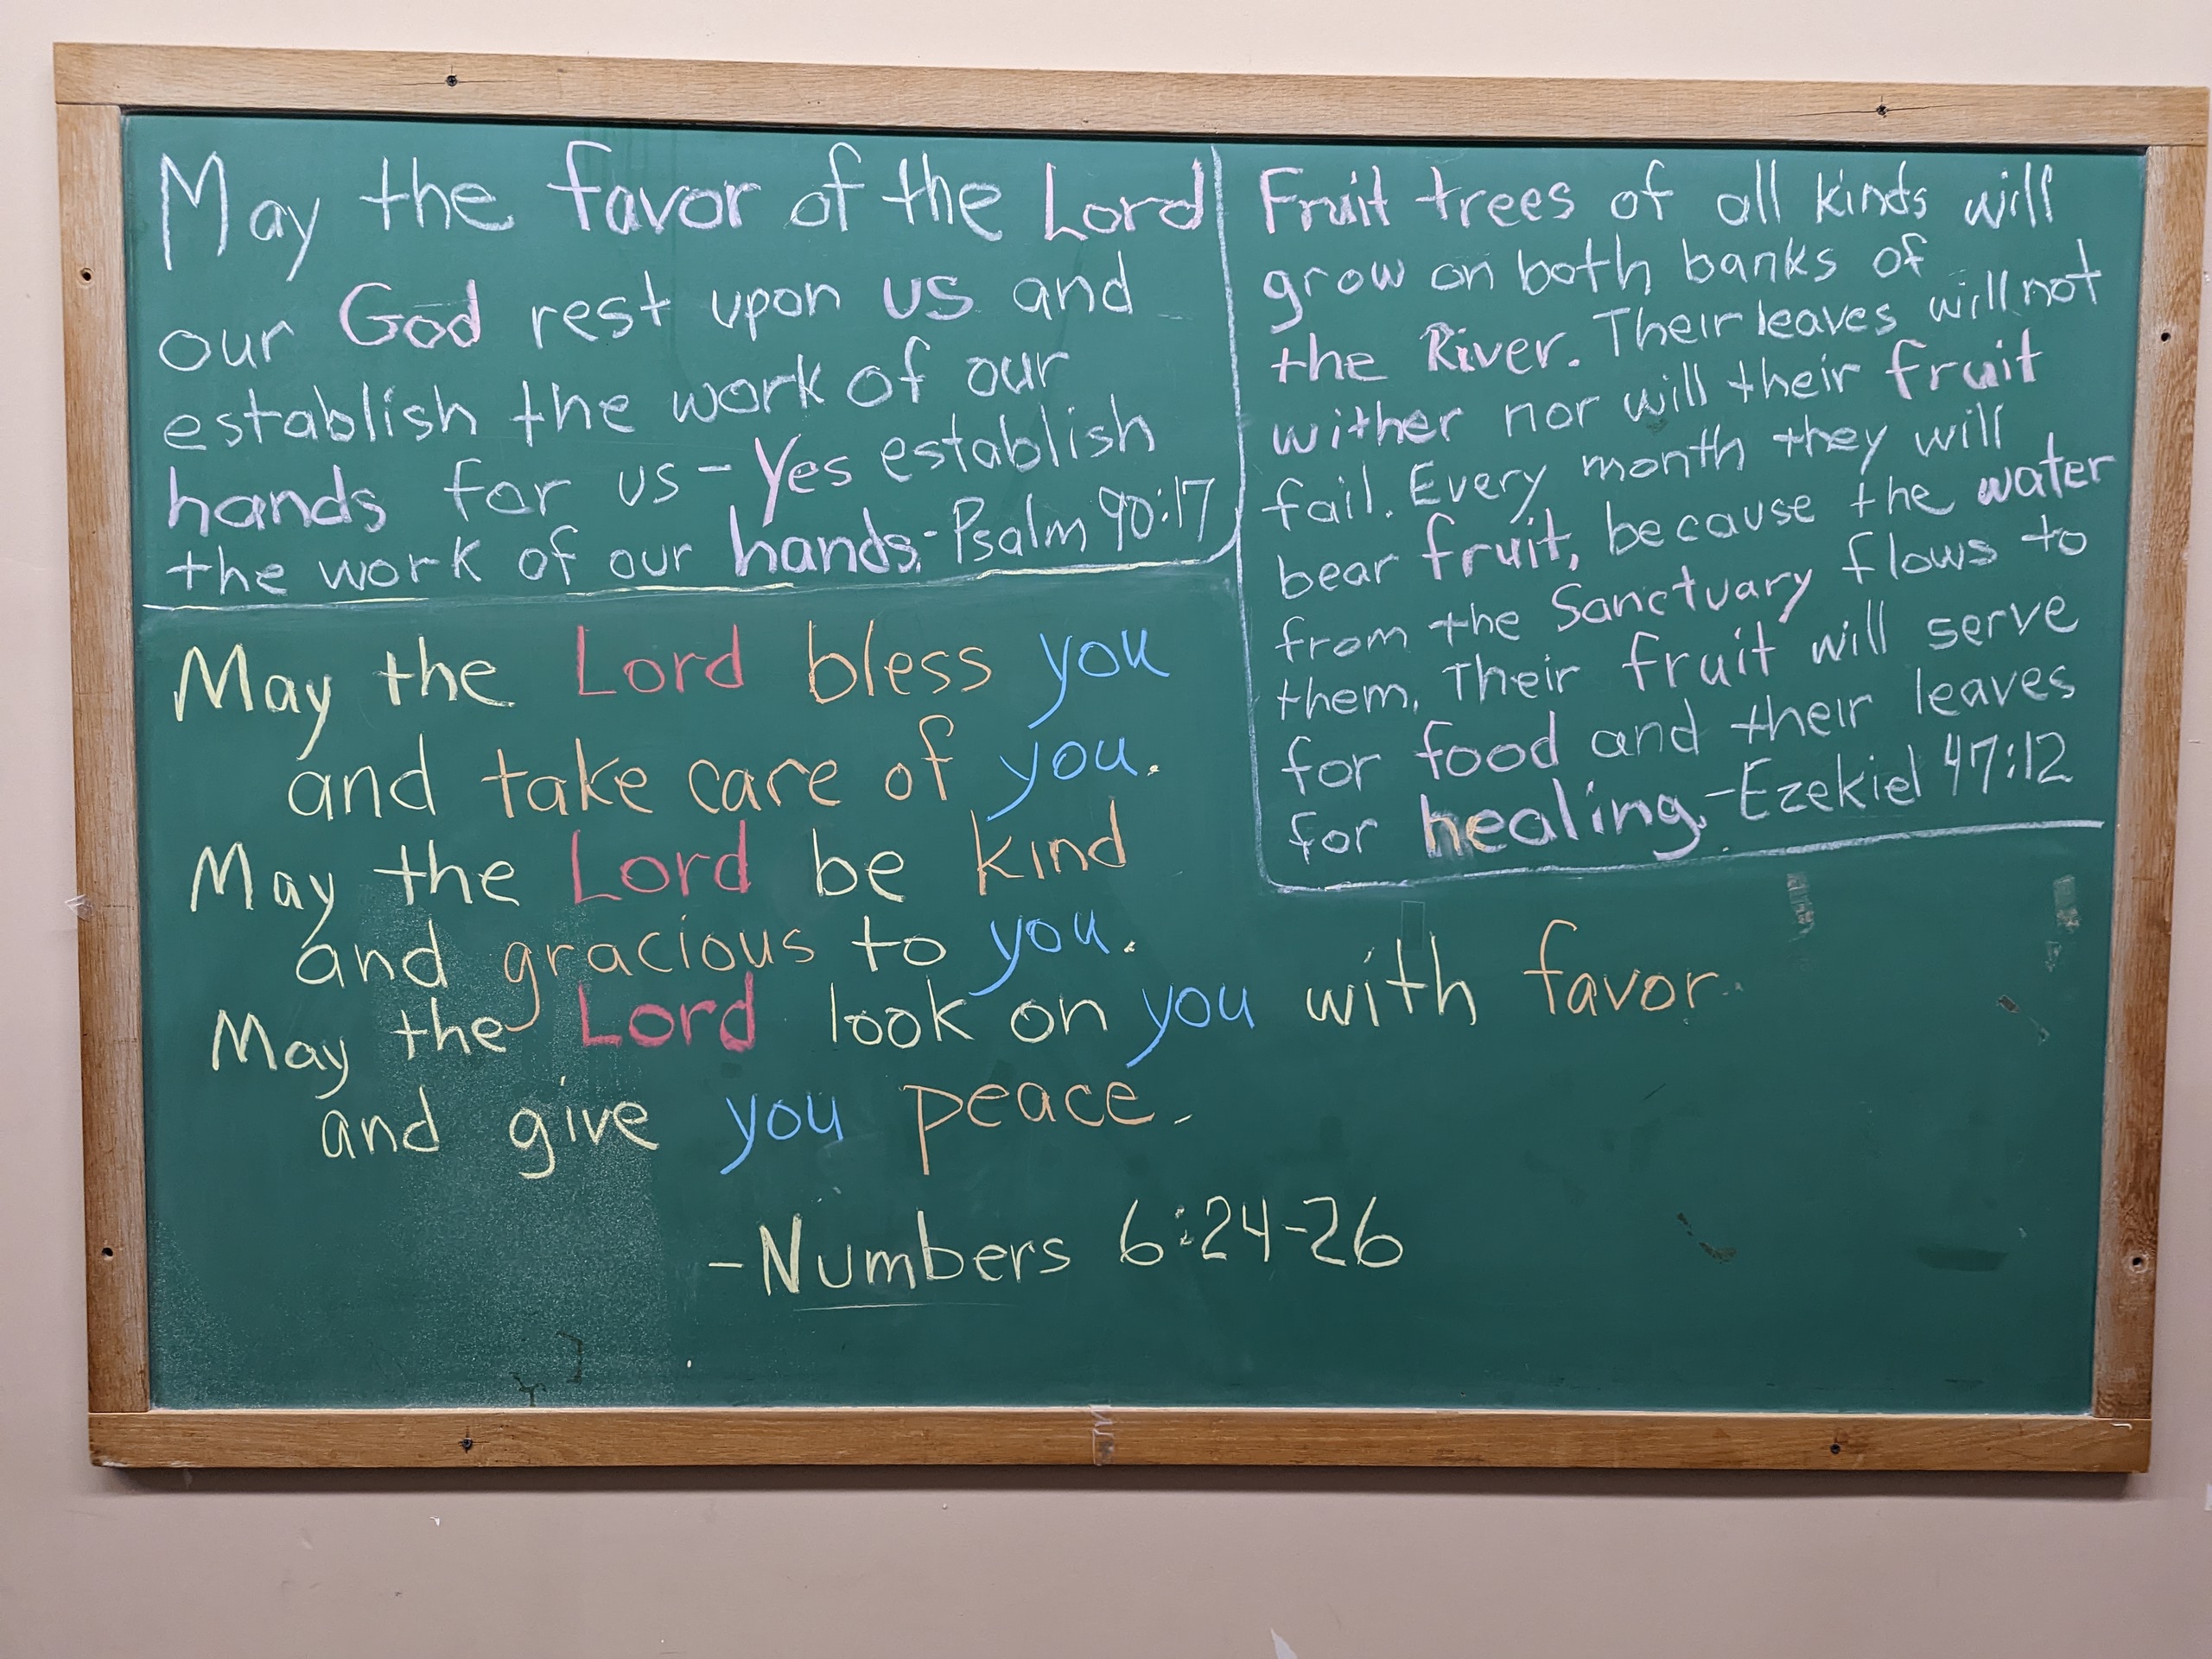 May the favor of the Lord
our God rest upon us and
establish the work of our
hands for us - Yes establish
the work of our hands. - Psalm 90:17
Fruit trees of all kinds will
grow on both banks of
the River. Their leaves will not
wither nor will their fruit
fail. Every month they will
bear fruit, because the water
from the Sanctuary flows to
them. Their fruit will serve
for food and their leaves
for healing. - Ezekiel 47:12
May the Lord bless you
and take care of you.
May the Lord be kind
and gracious to you.
May the Lord look on you with favor.
and give you peace.
- Numbers 6:24-26